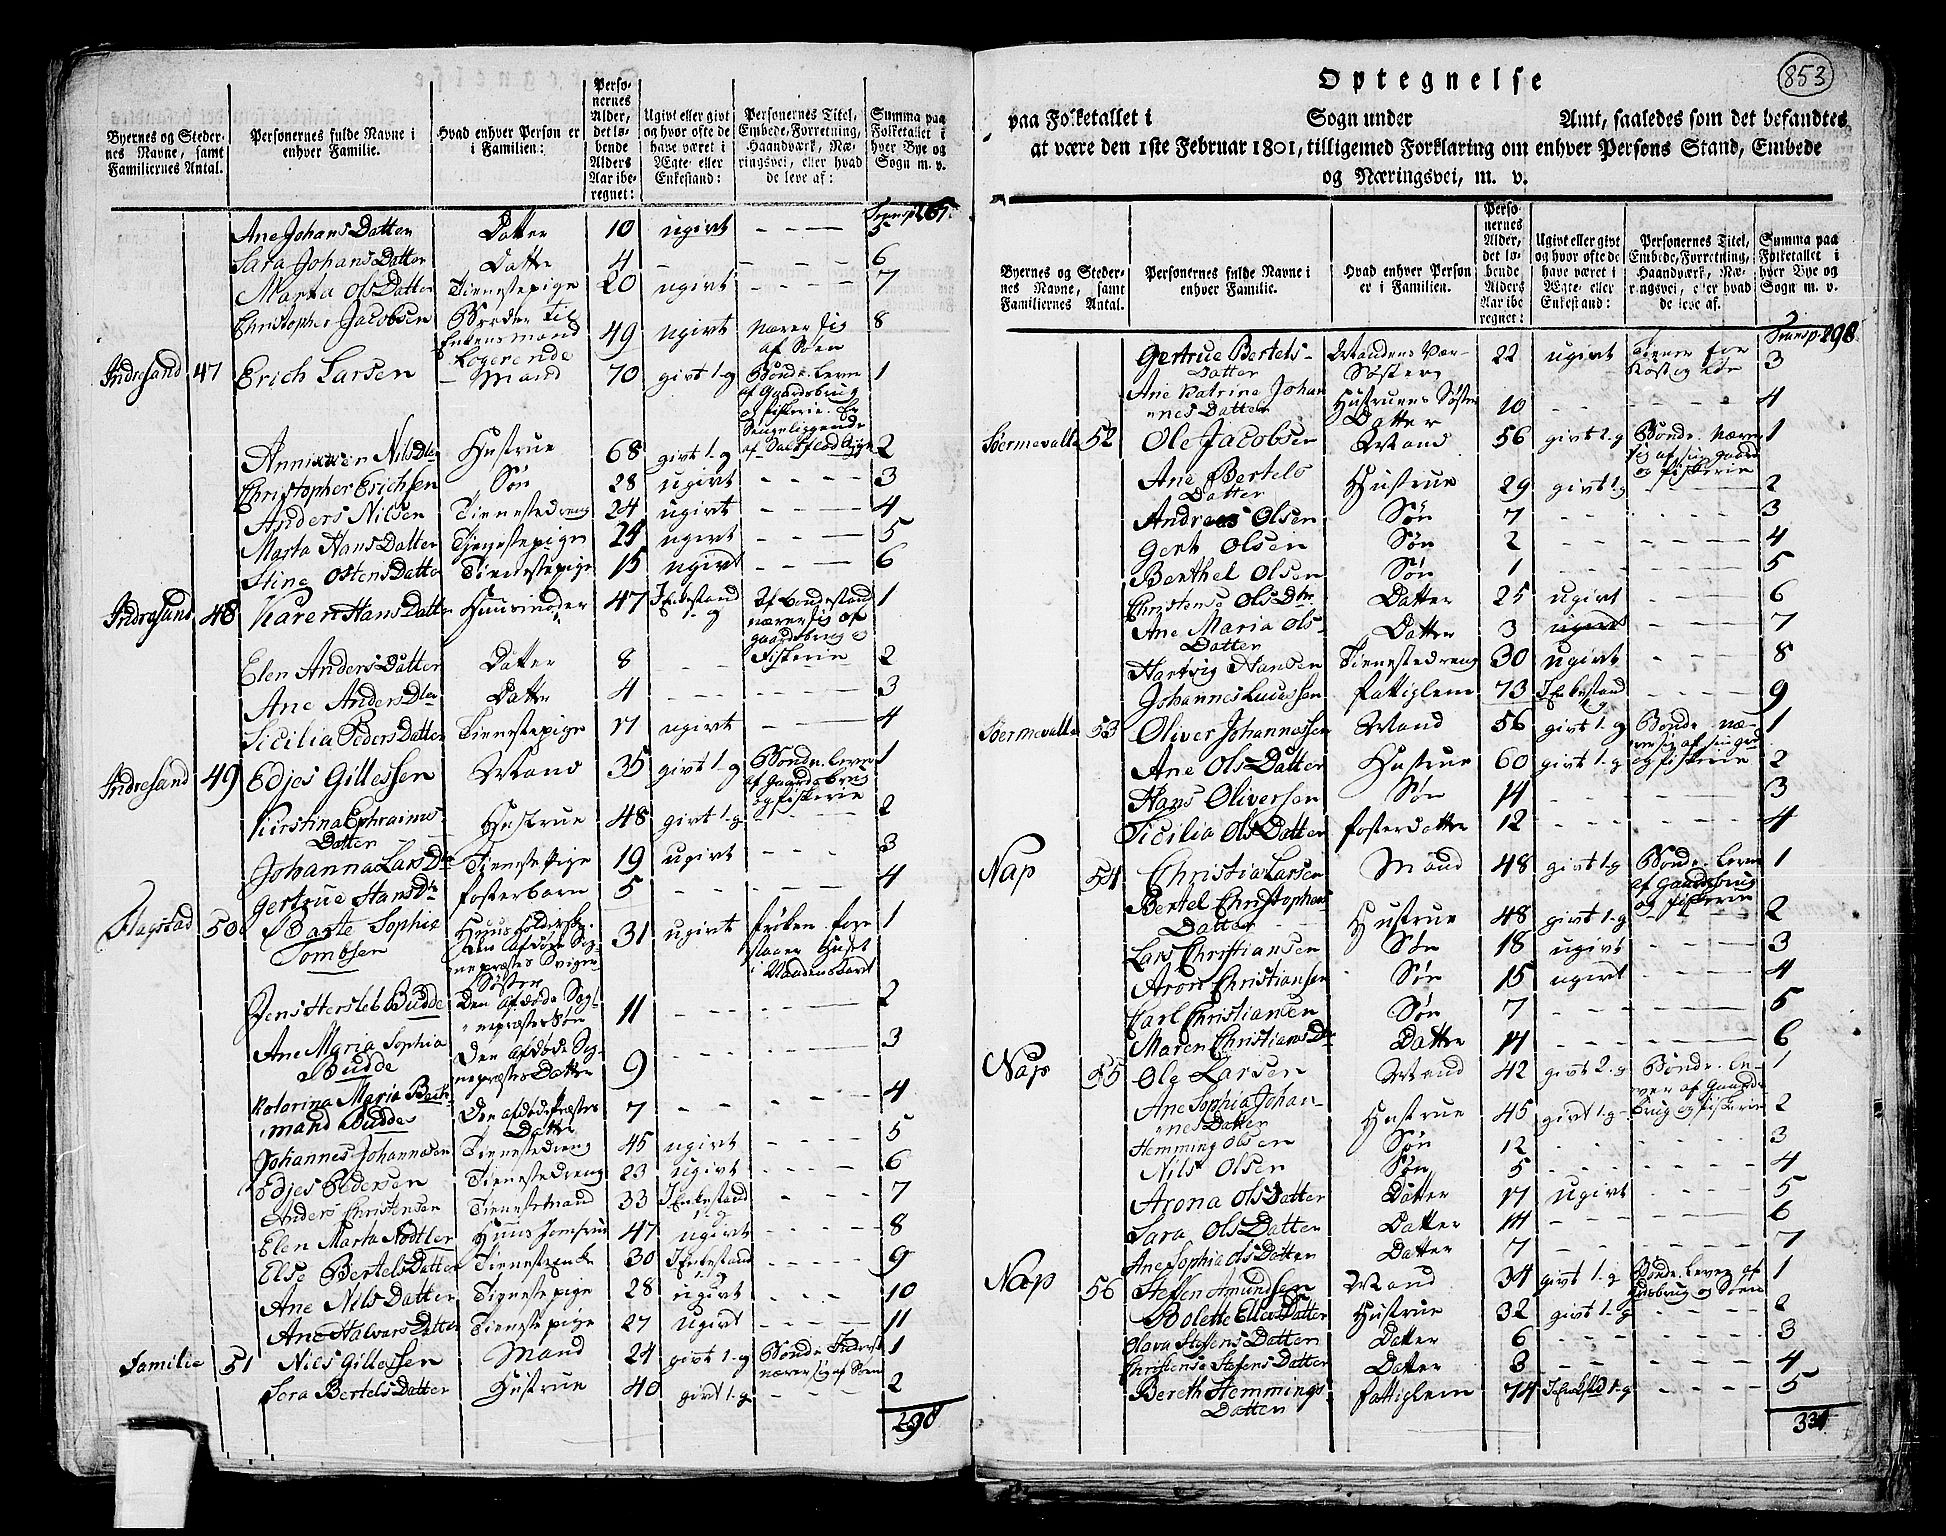 853
Byernes og Steder-
nes Navne, samt
Familiernes Antal.
Personernes fulde Navne i
enhver Familie.
Hvad enhver Person er
i Familien:
Perso-
nernes
Alder,
det lø-
bende
Alders
Aar ibe-
regnet:
Ugivt eller givt
og hvor ofte de
have været i
Ægte- eller
Enkestand:
Personernes Titel,
Embede, Forretning,
Haandværk, Næ-
ringsvei, eller hvad
de leve af:
Summa paa
Folketallet i
hver Bye og
Sogn m. v.
Transp 265
Ane Johans Datter Datter 10 ugivt - - - 5
Sara Johans Datter Datter 4 - - - 6
Marta Ols Datter Tienestepige 20 ugivt - - - 7
Christopher Jacobsen Broder til
Enkens mand
Logerende 49 ugivt nærer sig
af Søen 8
Indresand 47 Erich Larsen Mand 70 givt 1. g Bonde. Lever
af Gaardsbrug
og fiskerie. Er
Sengeliggende
1
Nils Dtr Hustrue 68 givt 1. g 2
Christopher Erichsen Søn 28 ugivt - - - 3
Anders Nilsen Tienestedreng 24 ugivt - - - 4
Marta Hans Datter Tjenestepige 24 ugivt - - - 5
Stine Ostens Datter Tienestepige 15 ugivt - - - 6
Indresand 48 Karen Hans Datter Huusmoder 47 I Enkestand
1. g Af bondestand
nærer sig af
gaardsbrug og
Fiskerie 1
Elen Anders Datter Datter 8 - - 2
Ane Anders Dter Datter 4 - - - 3
Sicilia Peders Datter Tienestepige 17 ugivt - - - 4
Indresand 49 Edjes Gillessen Mand 35 givt 1. g Bonde. Lever
af Gaardsbrug
og fiskerie 1
Kirstina Ephraims
Datter Hustrue 48 givt 1. g - - - 2
Johanna Lars Dtr Tieneste Pige 19 ugivt - - - 3
Gertrue Hans Dtr fosterbarn 5 - - - 4
Flagstad 50 Barte Sophia
Tombsen Huusholderske.
Den Afdøde Sog-
nepræstes Sviger-
Søster 31 ugivt frøken. fore-
staaer Huset
i Naadensaaret 1
Jens Hersleb Budde Den afdøde Sog-
nepræstes Søn 11 - - - 2
Ane Maria Sophia
Budde Den afdøde Sog-
nepræstes Datter 9 - - - 3
Katorina Maria Bach-
mand Budde Den afdøde Præstes
Datter 7 - - - 4
Johannes Johannesen Tienestedreng 45 ugivt - - - 5
Edjes Pedersen Tienestedreng 23 ugivt - - - 6
Anders Christensen Tienestmand 33 I Enkestand
1. g - - - 7
Elen Marta Nodtler Huus Jomfrue 47 ugivt - - - 8
Else Bertels Datter Tienesteenke 30 I Enkestand
1. g - - - 9
Ane Nils Datter Tienestepige 28 ugivt - - - 10
Ane Halvars Datter Tienestepige 27 ugivt - - - 11
Familie 51 Nils Gillessen Mand 24 givt 1. g Bonde
nærer sig af Søen 1
Sera Bertels Datter Hustrue 40 givt 1. g - - - 2
298
Optegnelse
paa Folketallet i Sogn under Amt, saaledes som det befandtes
at være den 1ste Februar 1801, tilligemed Forklaring om enhver Persons Stand, Embede
og Næringsvei, m. v.
Byernes og Steder-
nes Navne, samt
Familiernes Antal.
Personernes fulde Navne i
enhver Familie.
Hvad enhver Person
er i Familien.
Perso-
nernes
Alder,
det lø-
bende
Alders
Aar ibe-
regnet:
Ugivt eller givt
og hvor ofte de
have været i
Ægte- eller
Enkestand:
Personernes Titel,
Embede, Forretning,
Haandværk, Næ-
ringsvei, eller hvad
de leve af.
Summa paa
Folketallet i
hver Bye og
Sogn m. v.
Transp 298
Gertrue Bertels-
Datter Mandens Vær-
Søster 22 ugivt tiener for
kost og 3
Ane Katrine Johan
nes Datter Hustruens Søster
Datter 10 - - - 4
Sørmevalle 52 Ole Jacobsen Mand 56 givt 2. g Bonde. nærer
sig af sin gaard
og fiskerie 1
Ane Bertels
Datter Hustrue 29 givt 1. g - - 2
Andreas Olsen Søn 7 - - - 3
Gert Olsen Søn 2 - - - 4
Berthel Olsen Søn 1 - - - 5
Christense Ols Dtr. Datter 25 ugivt - - - 6
Ane Maria Ols-
Datter Datter 3 ugivt - - - 7
Hartvig Hansen Tienestedreng 30 ugivt - - - 8
Johannes Lucassen fattiglem 73 I Enkestand
1. g - - - 9
Sørmevalle 53 Oliver Johannessen Mand 56 givt 1. g Bonde. næ-
rer sig af sin gaard
og fiskerie 1
Ane Ols Datter Hustrue 60 givt 1. g 2
Hans Oliversen Søn 14 - - - 3
Sicilia Ols Datter fosterdatter 12 - - - 4
Nap 54 Christia Larsen Mand 48 givt 1. g Bonde. Lever
af Gaardsbrug
og fiskerie 1
Bertel Christophers
Datter Hustrue 48 givt 1. g 2
Lars Christiansen Søn 18 ugivt - - - 3
Aron Christiansen Søn 15 ugivt - - - 4
Carl Christiansen Søn 7 - - - 5
Maren Christians Dr Datter 14 - - - 6
Nap 55 Ole Larsen Mand 42 givt 2. g Bonde. Le-
ver af Gaards-
brug og fiskerie 1
Ane Sophia Johan-
nes Datter Hustrue 45 givt 1. g 2
Hemming Olsen Søn 12 - - - 3
Nils Olsen Søn 5 - - - 4
Arona Ols Datter Datter 17 ugivt - - - 5
Sara Ols Datter Datter 14 - - - 6
Ane Sophia Ols Datter Datter 7 - - - 7
Nap 56 Steffen Amundsen Mand 34 givt 1. g Bonde. Lever af
og Søen 1
Bolette Ellers Datter Hustrue 32 givt 1. g - - - 2
Olava Steffens Datter Datter 6 - - - 3
Christense Stefens Datter Datter 3 - - - 4
Bereth Hemmings
Datter fattiglem 74 I Enkestd 1. g - - - 5
334